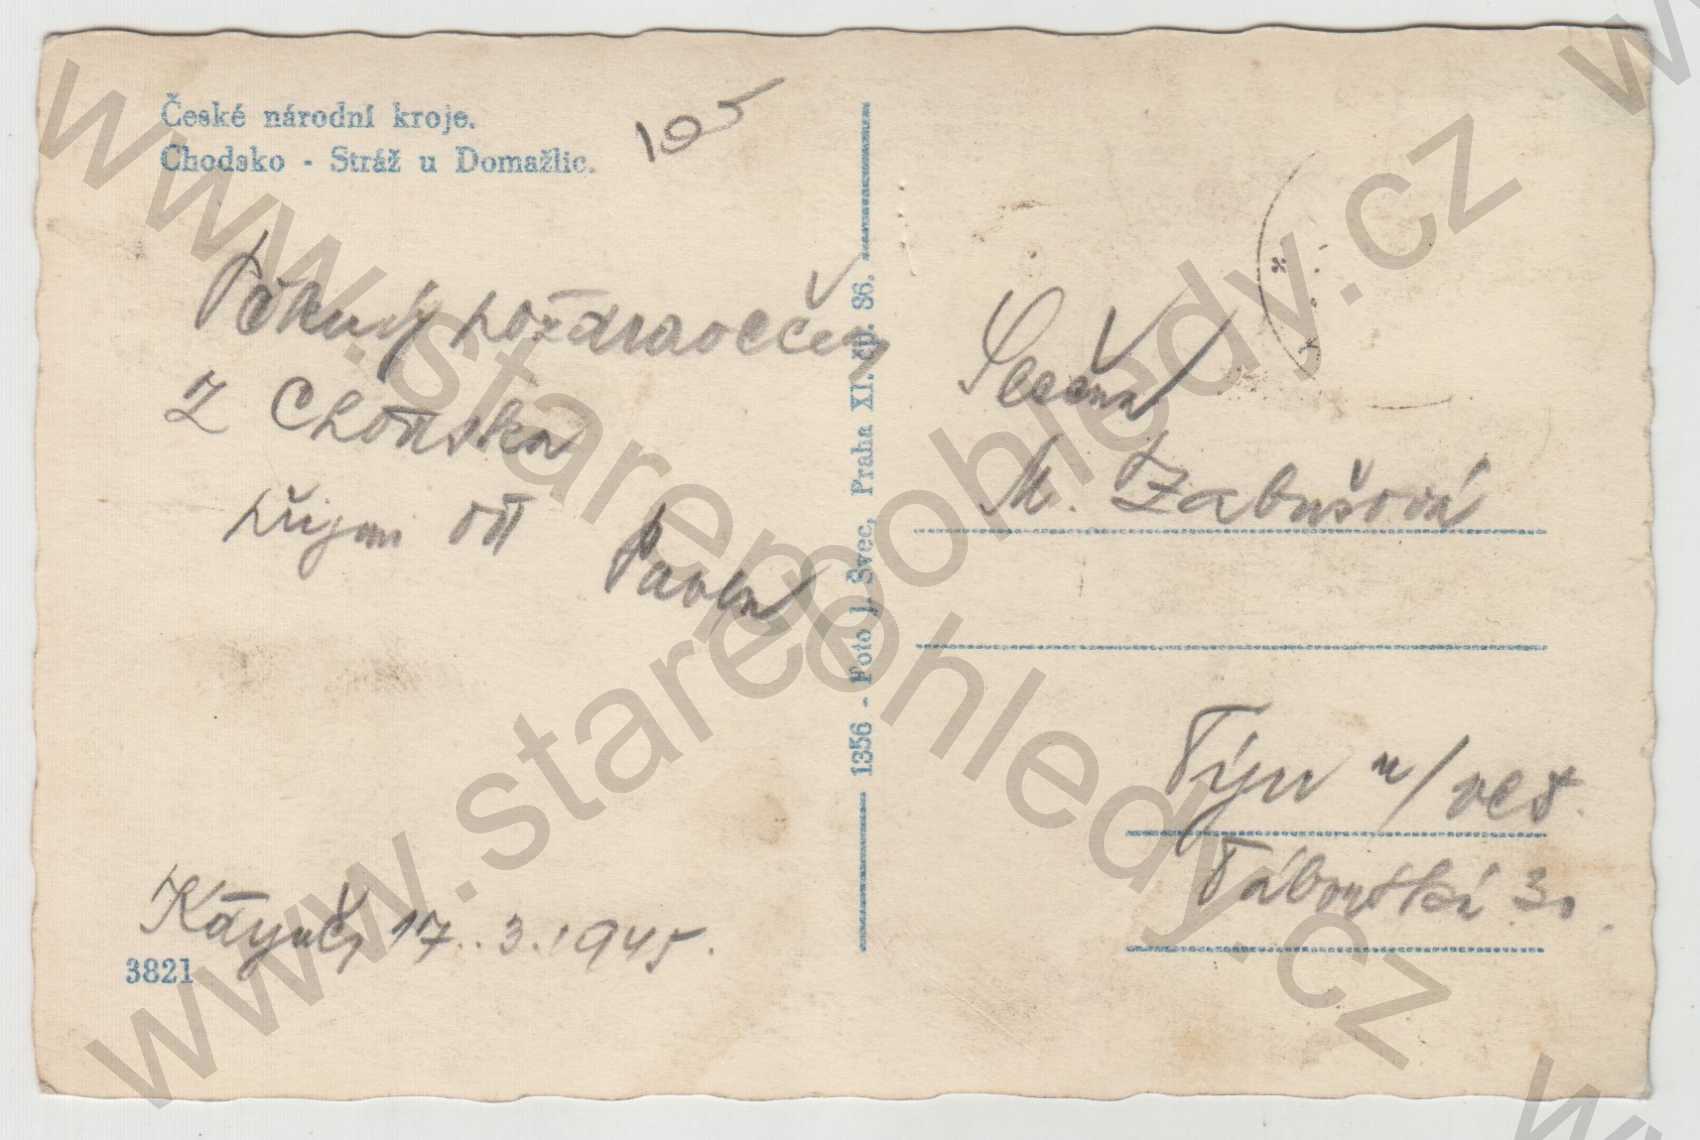 České národní kroje.
Chodsko - Stráž u Domažlic.
105
Pěkný pozdraveček
z Chodska
přijmi od Pavla
Kdyně, 17. 3. 1945.
3821
1356 - Foto J. Švec, Praha XI. čp. 86.
Slečna
M. Zabušová
Týn n/Vlt.
Táborská
www.starepohledy.cz
www.starepohledy.cz